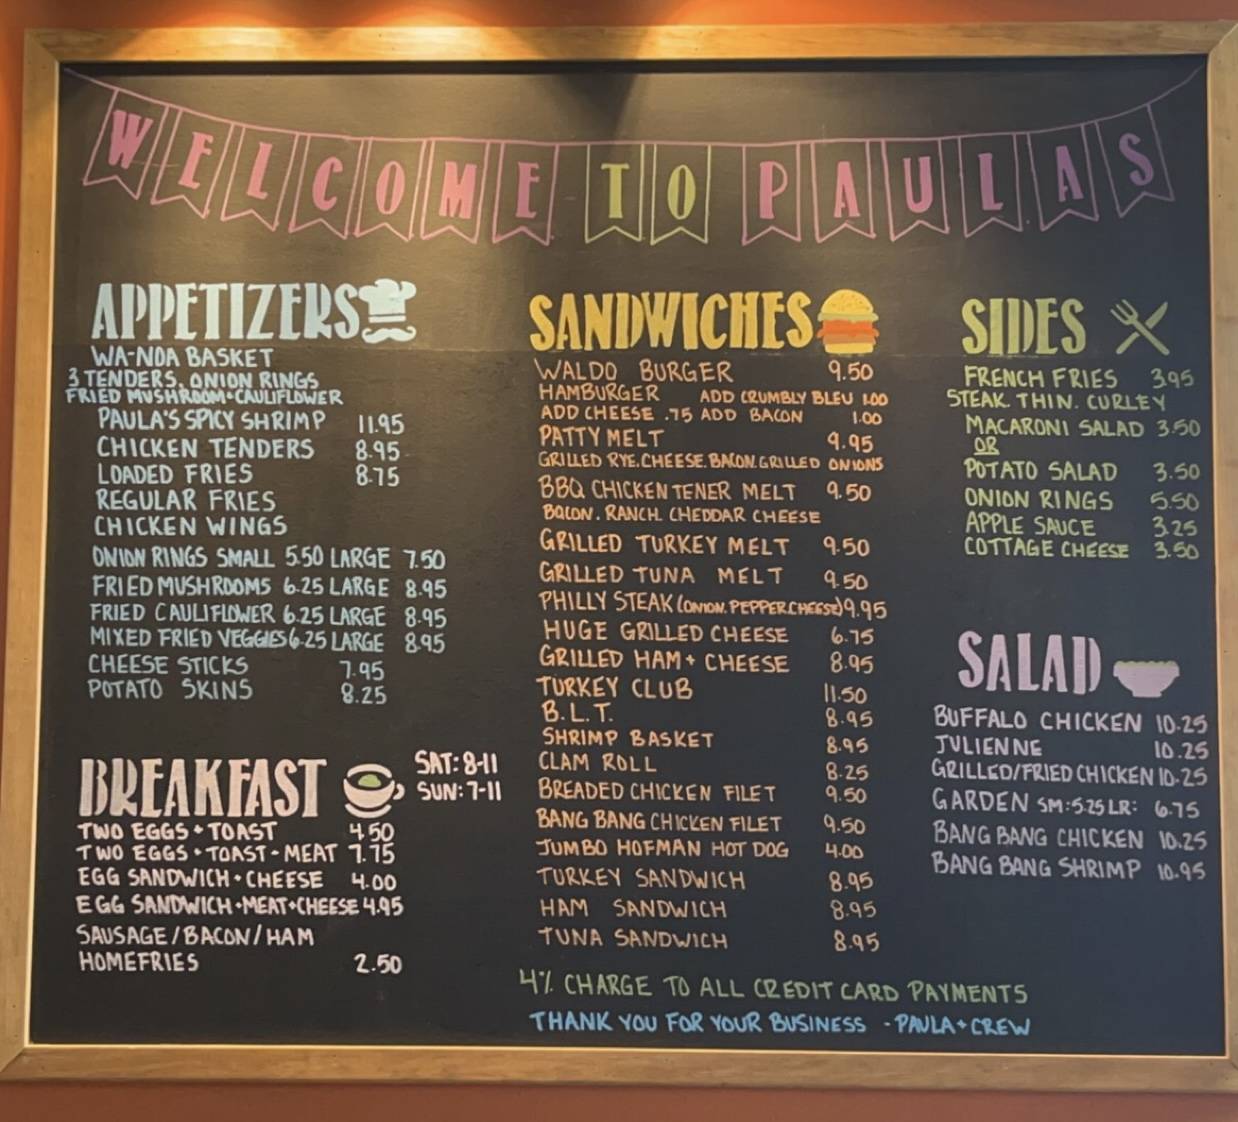 WELCOME TO PAULAS
APPETIZERS
WA-NOA BASKET
3 TENDERS. ONION RINGS
FRIED MUSHROOM+CAULIFLOWER
PAULA'S SPICY SHRIMP 11.95
CHICKEN TENDERS 8.95
LOADED FRIES 8.75
REGULAR FRIES
CHICKEN WINGS
ONION RINGS SMALL 5.50 LARGE 7.50
FRIED MUSHROOMS 6.25 LARGE 8.95
FRIED CAULIFLOWER 6.25 LARGE 8.95
MIXED FRIED VEGGIES 6.25 LARGE 8.95
CHEESE STICKS 7.95
POTATO SKINS 8.25
BREAKFAST
SAT: 8-11
SUN: 7-11
TWO EGGS + TOAST 4.50
TWO EGGS + TOAST - MEAT 7.75
EGG SANDWICH + CHEESE 4.00
EGG SANDWICH +MEAT+CHEESE 4.95
SAUSAGE/BACON/HAM
HOMEFRIES 2.50
SANDWICHES
WALDO BURGER 9.50
HAMBURGER ADD CRUMBLY BLEU 1.00
ADD CHEESE .75 ADD BACON 1.00
PATTY MELT 9.95
GRILLED RYE. CHEESE. BACON. GRILLED ONIONS
BBQ CHICKEN TENER MELT 9.50
BACON. RANCH. CHEDDAR CHEESE
GRILLED TURKEY MELT 9.50
GRILLED TUNA MELT 9.50
PHILLY STEAK (ONION. PEPPER CHEESE) 9.95
HUGE GRILLED CHEESE 6.75
GRILLED HAM+ CHEESE 8.95
TURKEY CLUB 11.50
B.L.T. 8.95
SHRIMP BASKET 8.95
CLAM ROLL 8.25
BREADED CHICKEN FILET 9.50
BANG BANG CHICKEN FILET 9.50
JUMBO HOFMAN HOT DOG 4.00
TURKEY SANDWICH 8.95
HAM SANDWICH 8.95
TUNA SANDWICH 8.95
SIDES
FRENCH FRIES 3.95
STEAK. THIN. CURLEY
MACARONI SALAD 3.50
OR
POTATO SALAD 3.50
ONION RINGS 5.50
APPLE SAUCE 3.25
COTTAGE CHEESE 3.50
SALAD
BUFFALO CHICKEN 10.25
JULIENNE 10.25
GRILLED/FRIED CHICKEN 10.25
GARDEN SM: 5.25 LR: 6.75
BANG BANG CHICKEN 10.25
BANG BANG SHRIMP 10.95
4% CHARGE TO ALL CREDIT CARD PAYMENTS
THANK YOU FOR YOUR BUSINESS - PAULA+CREW